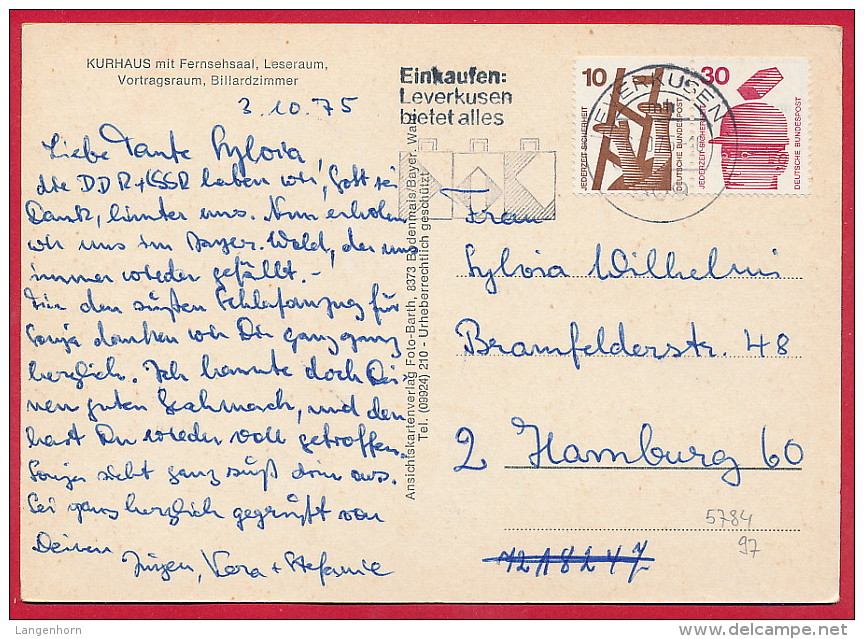 KURHAUS mit Fernsehsaal, Leseraum,
Vortragsraum, Billardzimmer
3.10.75
Liebe Tante Sylvia,
die DDR + ČSSR haben wir, Gott sei
Dank, hinter uns. Nun erholen
wir uns im Bayer. Wald, der uns
immer wieder gefällt. –
Für den süßen Schlafanzug für
Sonja danken wir Dir ganz ganz
herzlich. Ich kannte doch Dei-
nen guten Geschmack, und den
hast Du wieder voll getroffen.
Sonja sieht ganz süß drin aus.
Sei ganz herzlich gegrüßt von
Deinen
Jürgen, Vera + Stefanie
Ansichtskartenverlag Foto-Barth, 8373 Bodenmais/Bayer. Wald
Tel. (09924) 210 - Urheberrechtlich geschützt
Einkaufen:
Leverkusen
bietet alles
LEVERKUSEN
10
JEDERZEIT SICHERHEIT
DEUTSCHE BUNDESPOST
30
JEDERZEIT-SICHERHEIT
DEUTSCHE BUNDESPOST
Frau
Sylvia Wilhelmi
Bramfelderstr. 48
2 Hamburg 60
5784
97
Langenhorn
www.delcampe.net